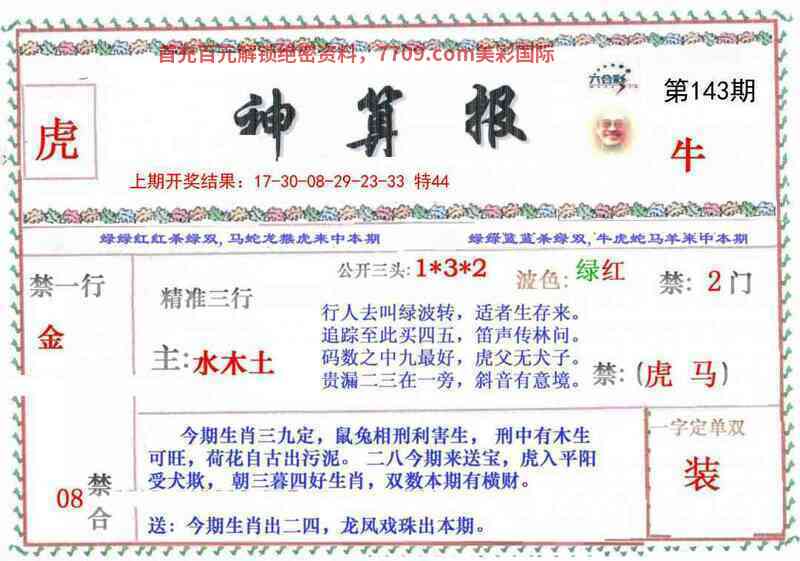 首充百元解锁绝密资料，7709.com美彩国际
六合彩
第143期
虎
神算报
牛
上期开奖结果：17-30-08-29-23-33 特44
绿绿红红杀绿双,马蛇龙猴虎来中本期
绿绿蓝蓝杀绿双,牛虎蛇马羊来中本期
禁一行
金
精准三行
主:水木土
公开三头:1*3*2
波色:绿红
禁:2门
行人去叫绿波转，适者生存来。
追踪至此买四五，笛声传林问。
码数之中九最好，虎父无犬子。
贵漏二三在一旁，斜音有意境。
禁:(虎 马)
08
禁
合
今期生肖三九定，鼠兔相刑利害生， 刑中有木生
可旺，荷花自古出污泥。 二八今期来送宝，虎入平阳
受犬欺， 朝三暮四好生肖，双数本期有横财。
送：今期生肖出二四，龙凤戏珠出本期。
一字定单双
装